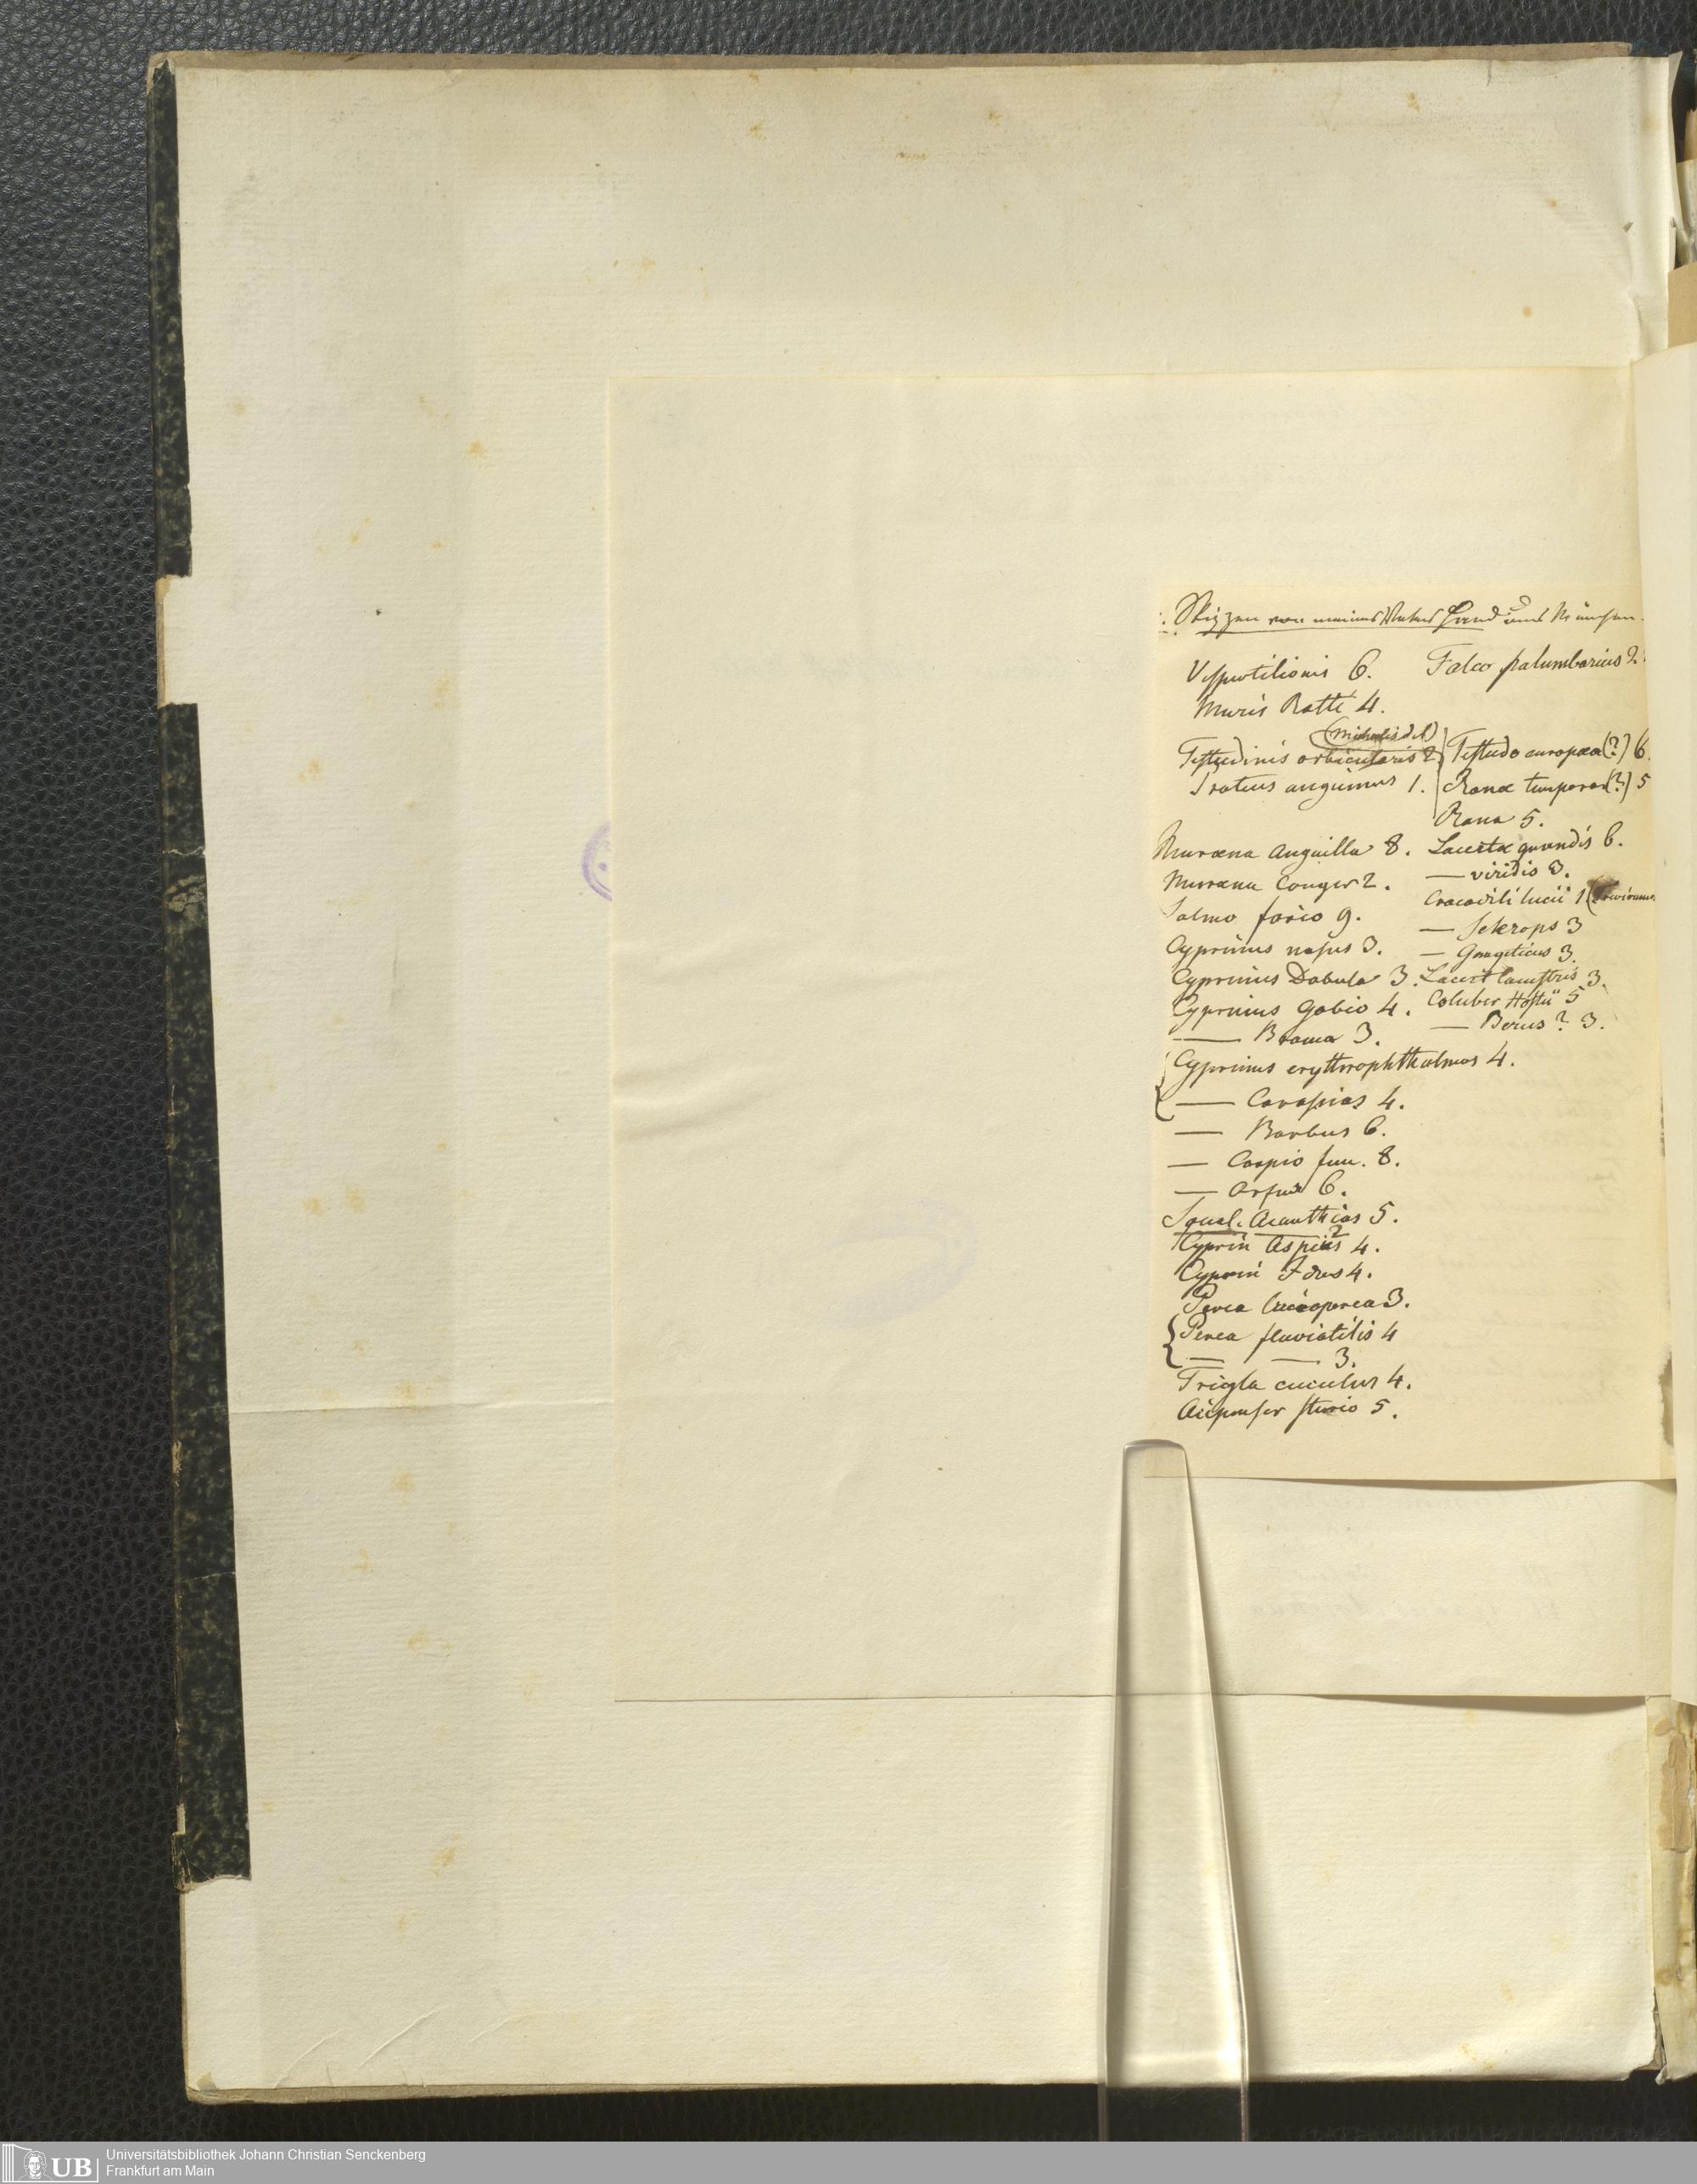 Skizzen von meines Vaters Hand und
Vespertilionis 6.
Muris Ratti 4.
(Michaelis del)
Testudinis orbicularis 2
Proteus anguinus 1.
Muraena Anguilla 8.
Muraena Conger 2.
Salmo fario 9.
Cyprinus nasus 3.
Cyprinus Dobula 3.
Cyprinus Gobio 4.
— Brama 3.
Cyprinus erythrophthalmos 4.
— Carassias 4.
— Barbus 6.
— Carpio 8.
— Orfus 6.
Squal. Acanthias 5.
Cyprin Aspius? 4.
Cyprin Idus 4.
Perca Lucioperca 3.
Perca fluviatilis 4
— — 3.
Trigla cuculus 4.
Acipenser sturio 5.
Falco palumbarius 2.
Testudo europaea (?) 6.
Ranae temporar (?) 5
Rana 5.
Lacertae grandis 6.
— viridis 3.
Crocodili lucii 1 (Treviranus
— Sclerops 3
— Gangeticus 3.
Lacert lacustris 3.
Coluber Hostii 5
— Berus? 3.
UB
Universitätsbibliothek Johann Christian Senckenberg
Frankfurt am Main